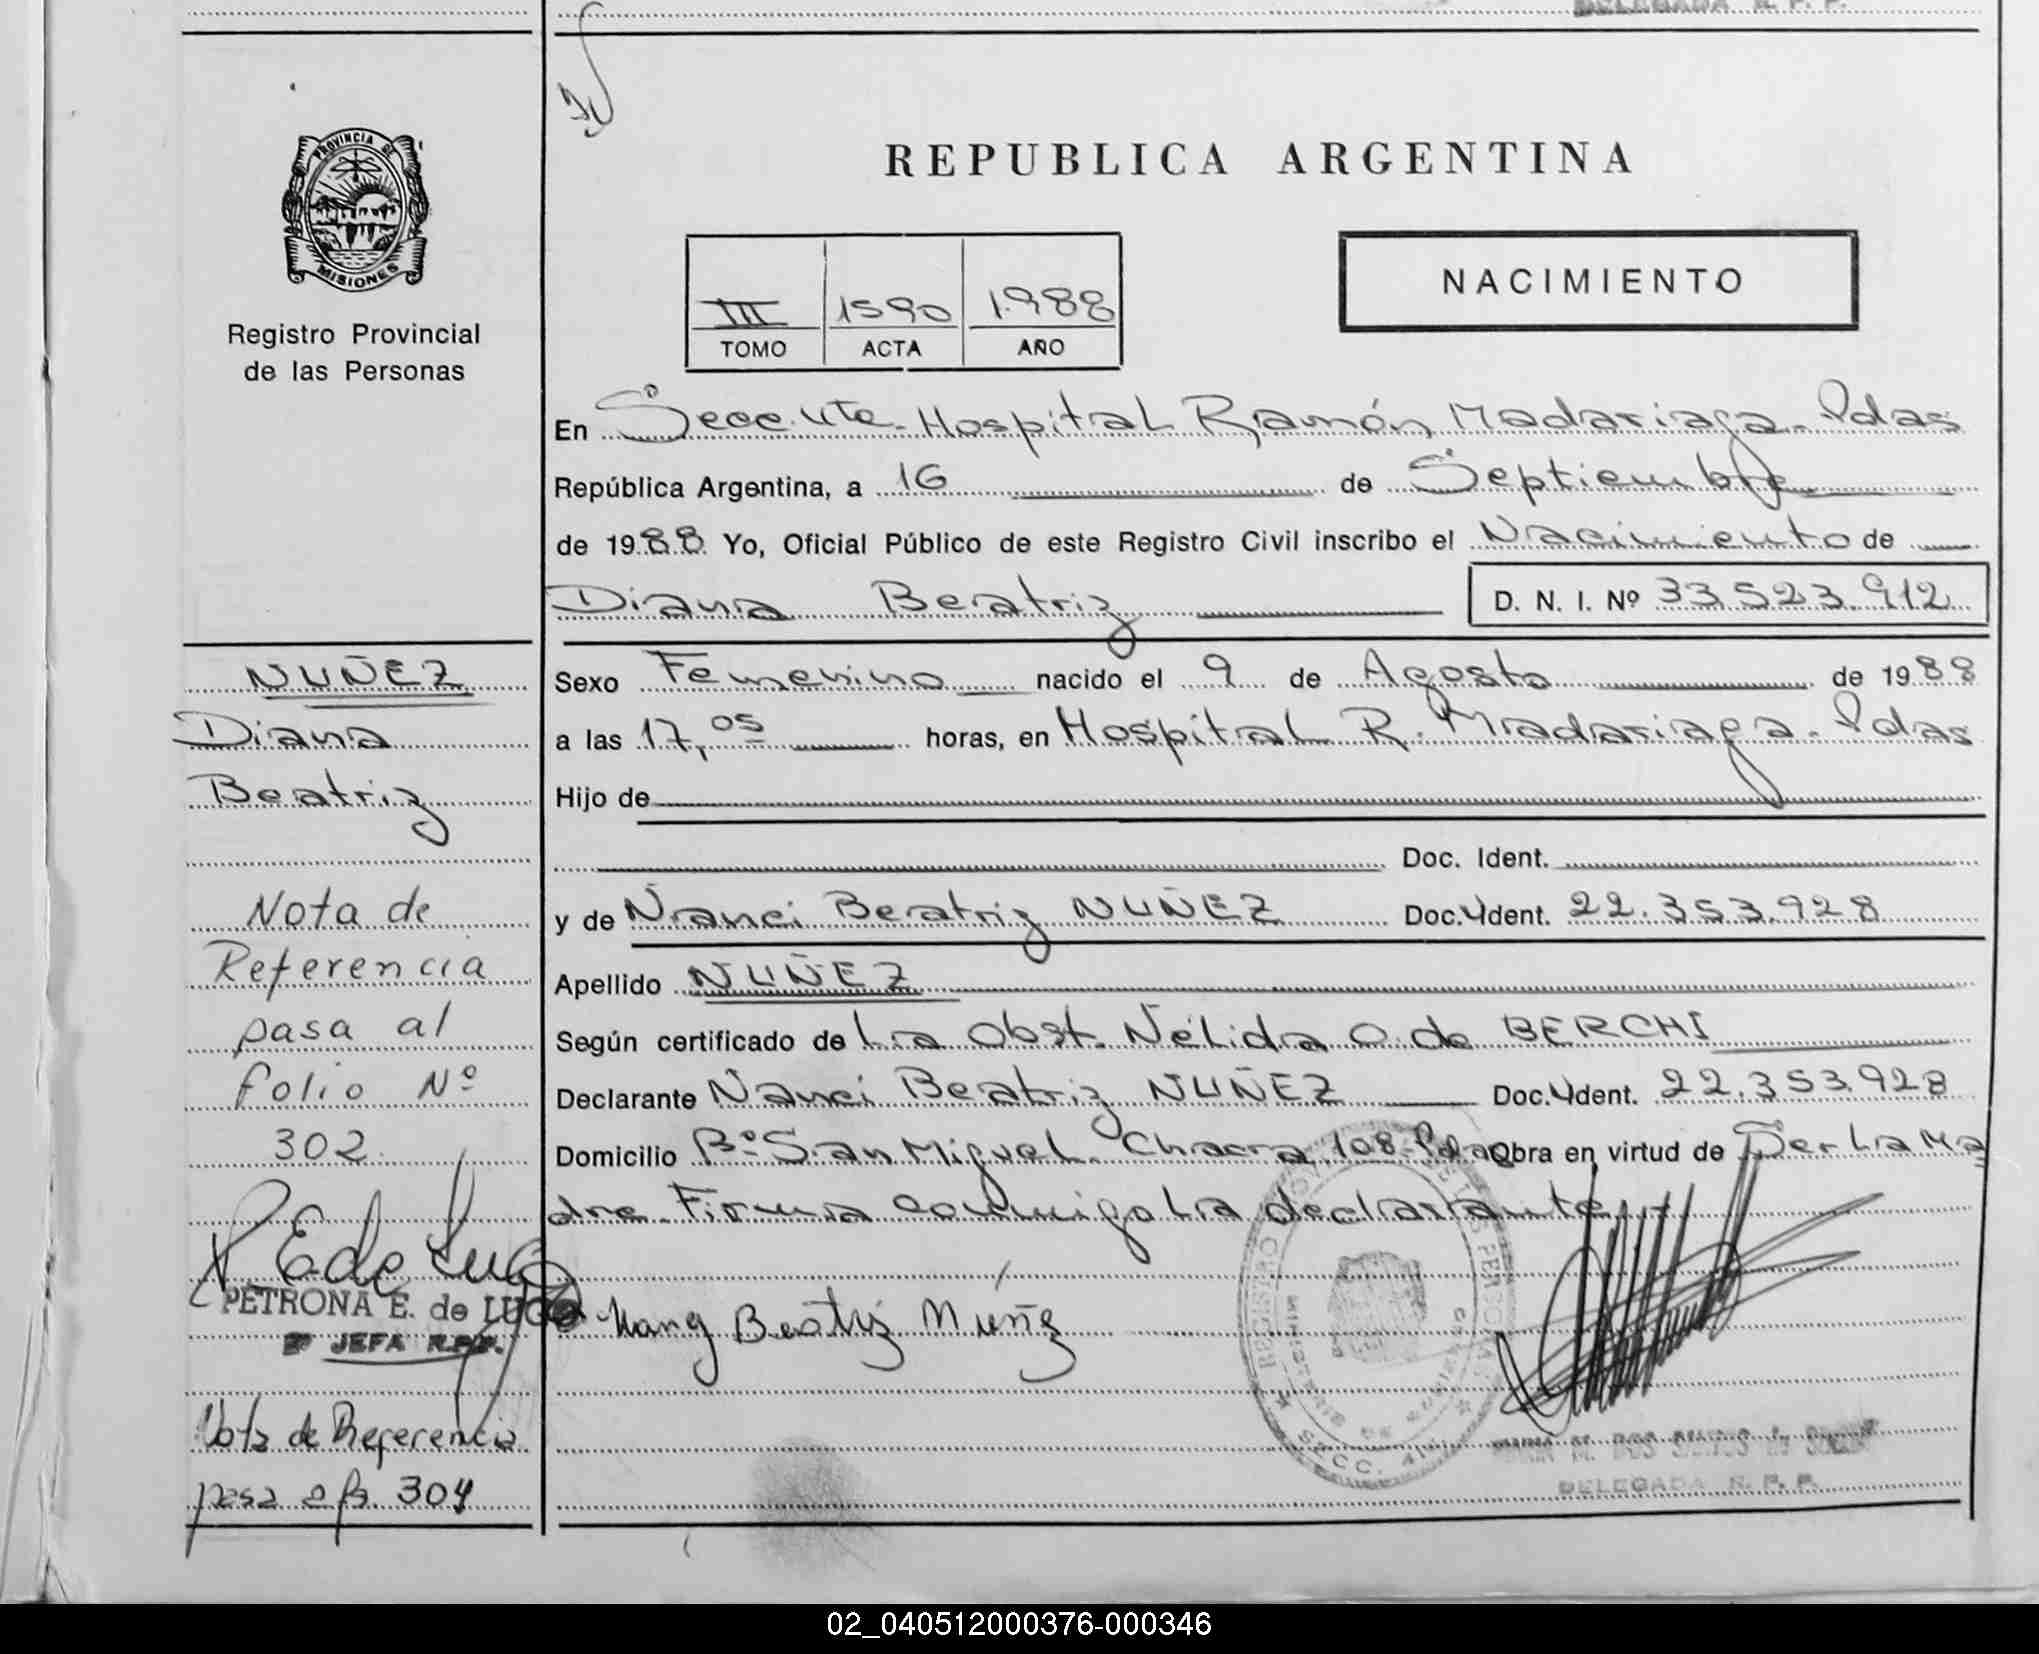 DELEGADA R. P. P.
PROVINCIA DE
MISIONES
Registro Provincial
de las Personas
REPUBLICA ARGENTINA
NACIMIENTO
III 1590 1.988
TOMO ACTA AÑO
En Secc. Hospital Ramón Madariaga. Pdas
República Argentina, a 16 de Septiembre
de 1988 Yo, Oficial Público de este Registro Civil inscribo el Nacimiento de
Diana Beatriz D. N. I. Nº 33.523.912
Sexo Femenino nacido el 9 de Agosto de 1988
a las 17,05 horas, en Hospital R. Madariaga. Pdas
Hijo de
Doc. Ident.
y de Nanci Beatriz NUÑEZ Doc. Ident. 22.353.928
Apellido NUÑEZ
Según certificado de La Obst. Nélida O. de BERCHI
Declarante Nanci Beatriz NUÑEZ Doc. Ident. 22.353.928
Domicilio Bº San Miguel Chacra 108-Pdas Obra en virtud de Ser La Ma
dre. Firma conmigo La declarante
Beatriz
DELEGADA R. P. P.
NUÑEZ
Diana
Beatriz
Nota de
Referencia
pasa al
folio Nº
302
P E de Lugo
PETRONA E. de LUGO
JEFA R.P.P.
Nota de Referencia
pasa a fs. 304
02_040512000376-000346